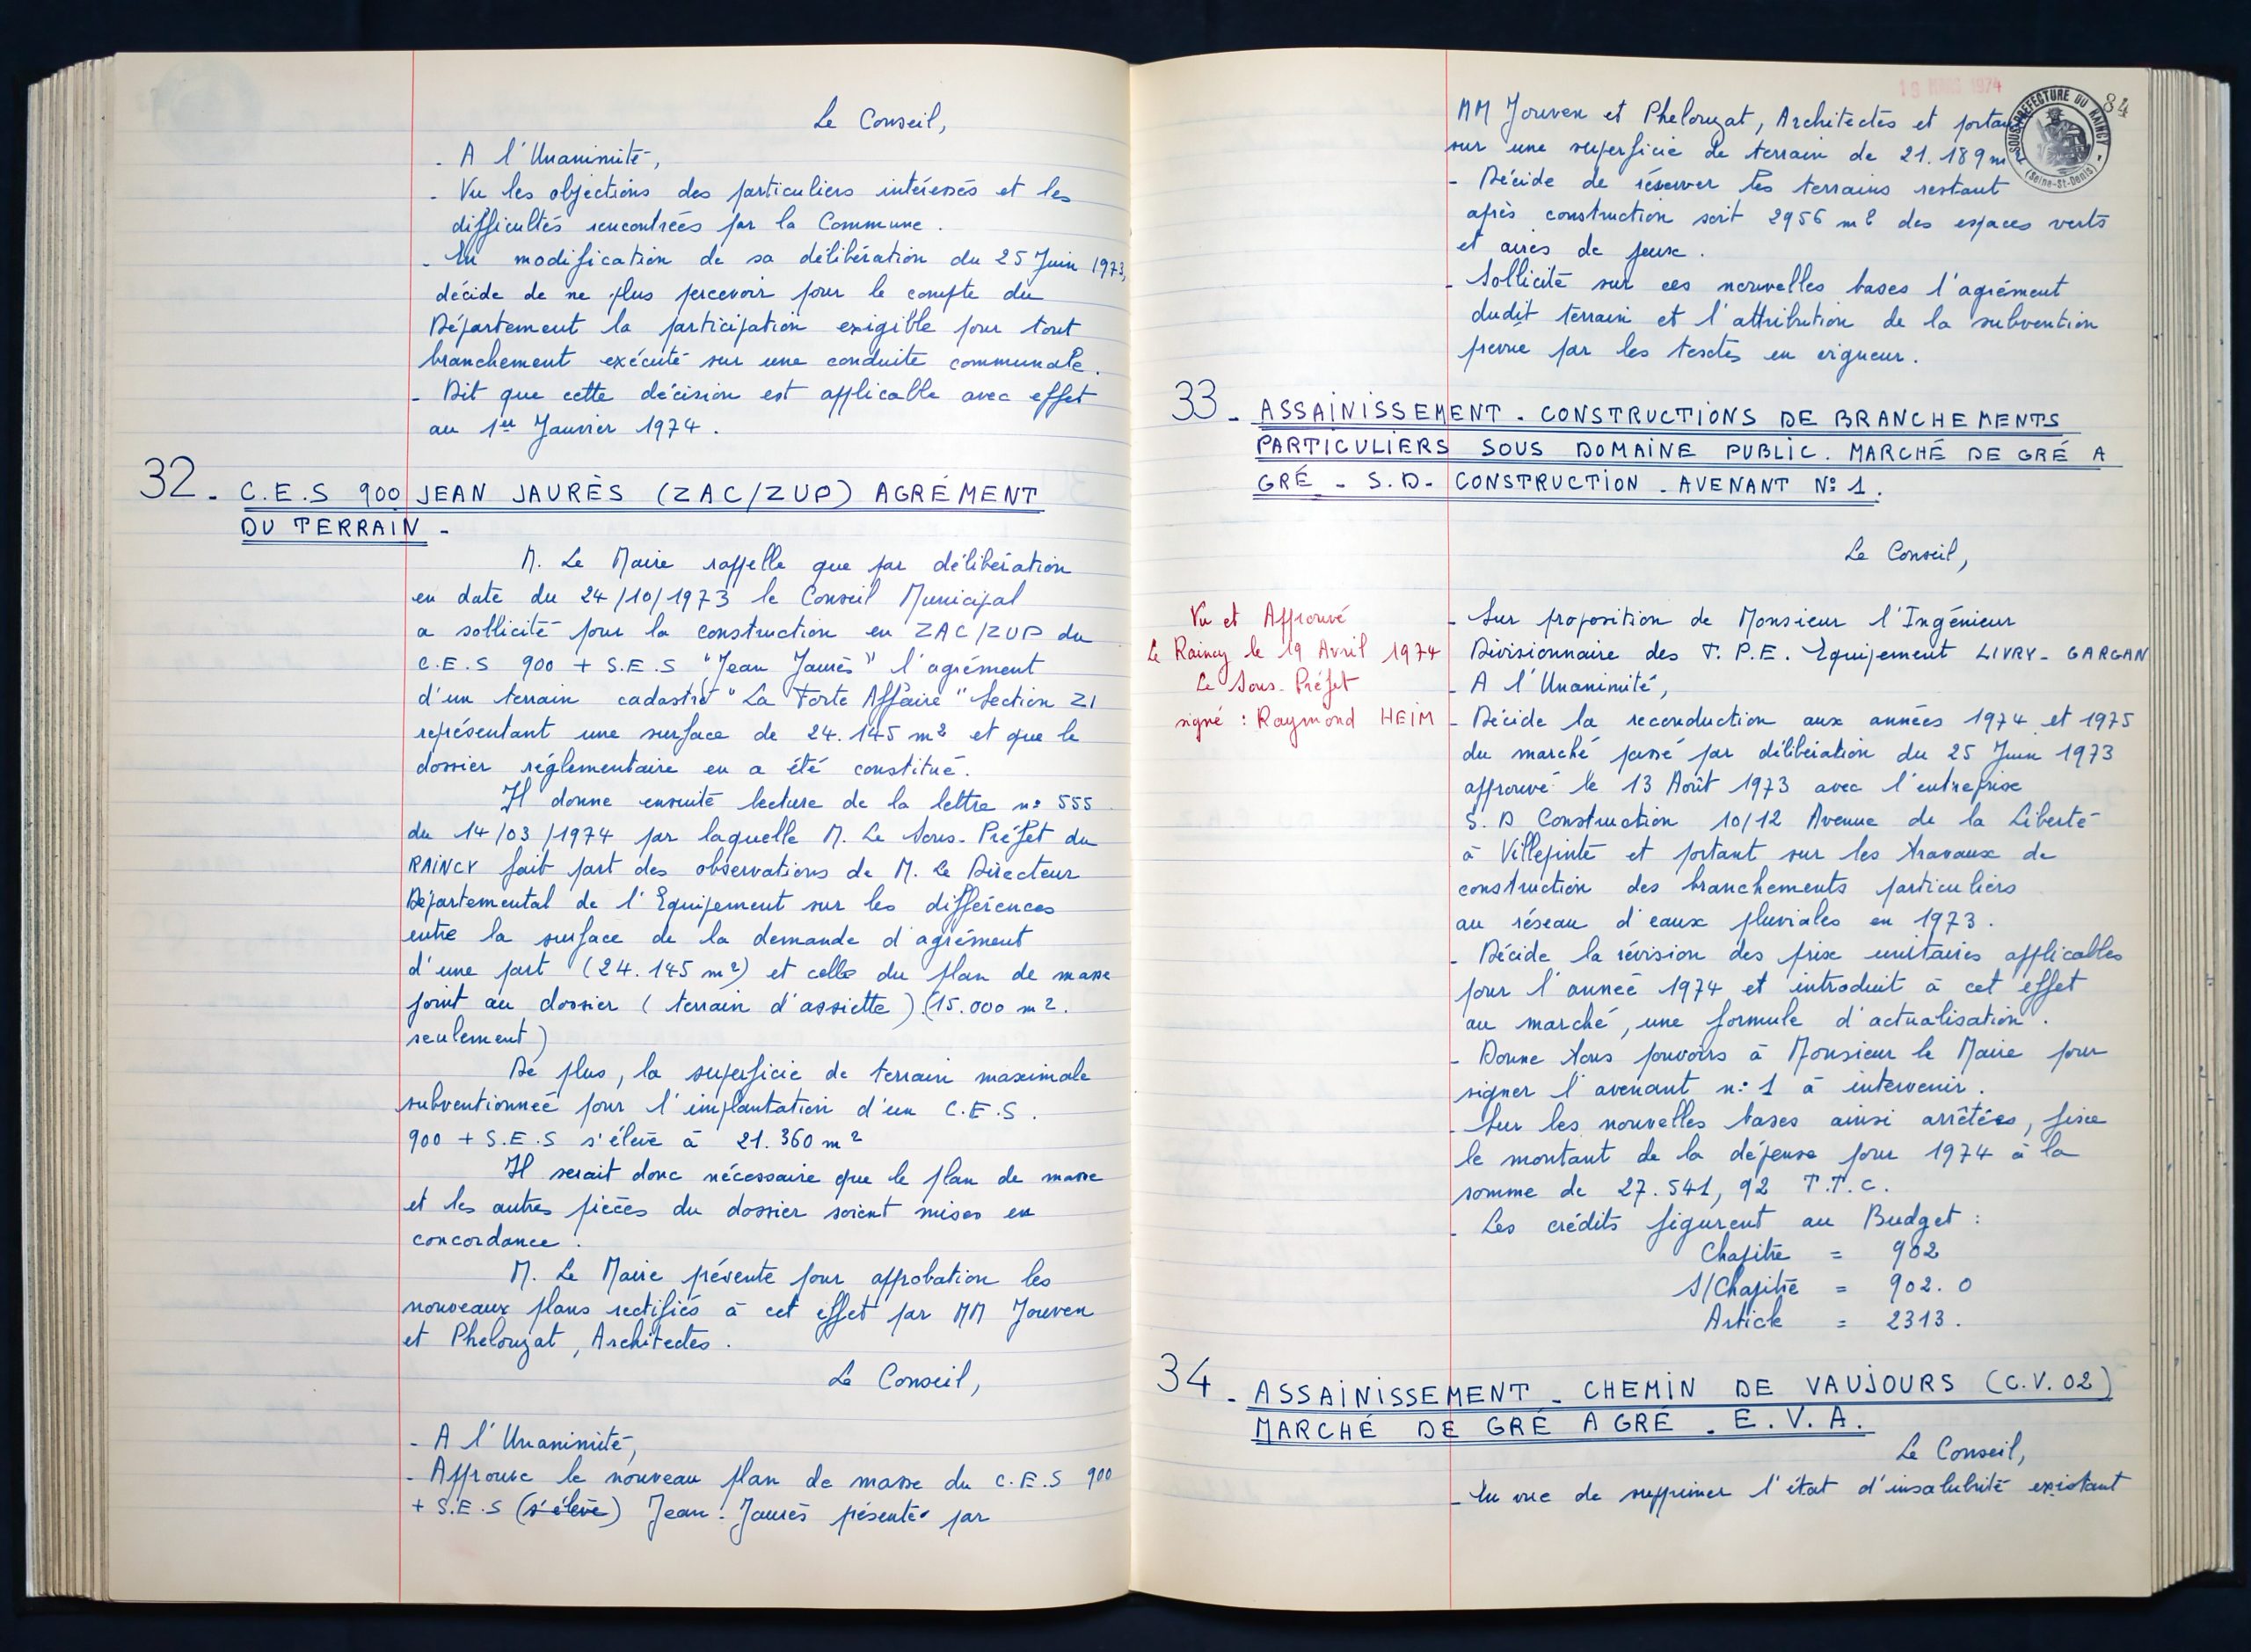 Le Conseil,
- A l'Unanimité,
- Vu les objections des particuliers intéressés et les
difficultés rencontrées par la Commune.
- En modification de sa délibération du 25 Juin 1973,
décide de ne plus percevoir pour le compte du
Département la participation exigible pour tout
branchement exécuté sur une conduite communale.
- Dit que cette décision est applicable avec effet
au 1er Janvier 1974.
32 - C.E.S 900 JEAN JAURÈS (ZAC/ZUP) AGRÉMENT
DU TERRAIN -
M. Le Maire rappelle que par délibération
en date du 24/10/1973 le Conseil Municipal
a sollicité pour la construction en ZAC/ZUP du
C.E.S 900 + S.E.S "Jean Jaurès" l'agrément
d'un terrain cadastré "La Forte Affaire" Section ZI
représentant une surface de 24.145 m2 et que le
dossier réglementaire en a été constitué.
Il donne ensuite lecture de la lettre n° 555
du 14/03/1974 par laquelle M. Le Sous-Préfet du
RAINCY fait part des observations de M. Le Directeur
Départemental de l'Equipement sur les différences
entre la surface de la demande d'agrément
d'une part (24.145 m2) et celle du plan de masse
joint au dossier (terrain d'assiette) (15.000 m2.
seulement)
De plus, la superficie de terrain maximale
subventionnée pour l'implantation d'un C.E.S.
900 + S.E.S s'élève à 21.360 m2
Il serait donc nécessaire que le plan de masse
et les autres pièces du dossier soient mises en
concordance.
M. Le Maire présente pour approbation les
nouveaux plans rectifiés à cet effet par MM Jouven
et Phelouzat, Architectes.
Le Conseil,
- A l'Unanimité,
- Approuve le nouveau plan de masse du C.E.S 900
+ S.E.S (s'élève) Jean Jaurès présenté par
18 MARS 1974
SOUS-PREFECTURE DU RAINCY
(Seine-St-Denis)
84
MM Jouven et Phelouzat, Architectes et portant
sur une superficie de terrain de 21.189 m
- Décide de réserver les terrains restant
après construction soit 2956 m2 des espaces verts
et aires de jeux.
- Sollicite sur ces nouvelles bases l'agrément
dudit terrain et l'attribution de la subvention
prévue par les textes en vigueur.
33 - ASSAINISSEMENT - CONSTRUCTIONS DE BRANCHEMENTS
PARTICULIERS SOUS DOMAINE PUBLIC. MARCHÉ DE GRÉ A
GRÉ - S.D- CONSTRUCTION - AVENANT N° 1.
Le Conseil,
Vu et Approuvé
Le Raincy le 19 Avril 1974
Le Sous-Préfet
signé : Raymond HEIM
- Sur proposition de Monsieur l'Ingénieur
Divisionnaire des T.P.E. Equipement LIVRY-GARGAN
- A l'Unanimité,
- Décide la reconduction aux années 1974 et 1975
du marché passé par délibération du 25 Juin 1973
approuvé le 13 Août 1973 avec l'entreprise
S.D Construction 10/12 Avenue de la Liberté
à Villepinte et portant sur les travaux de
construction des branchements particuliers
au réseau d'eaux pluviales en 1973.
- Décide la révision des prix unitaires applicables
pour l'année 1974 et introduit à cet effet
au marché, une formule d'actualisation.
- Donne tous pouvoirs à Monsieur le Maire pour
signer l'avenant n° 1 à intervenir.
- Sur les nouvelles bases ainsi arrêtées, fixe
le montant de la dépense pour 1974 à la
somme de 27.541,92 T.T.C.
- Les crédits figurent au Budget :
Chapitre = 902
S/Chapitre = 902.0
Article = 2313.
34 - ASSAINISSEMENT - CHEMIN DE VAUJOURS (C.V.02)
MARCHÉ DE GRÉ A GRÉ - E.V.A.
Le Conseil,
- En vue de supprimer l'état d'insalubrité existant